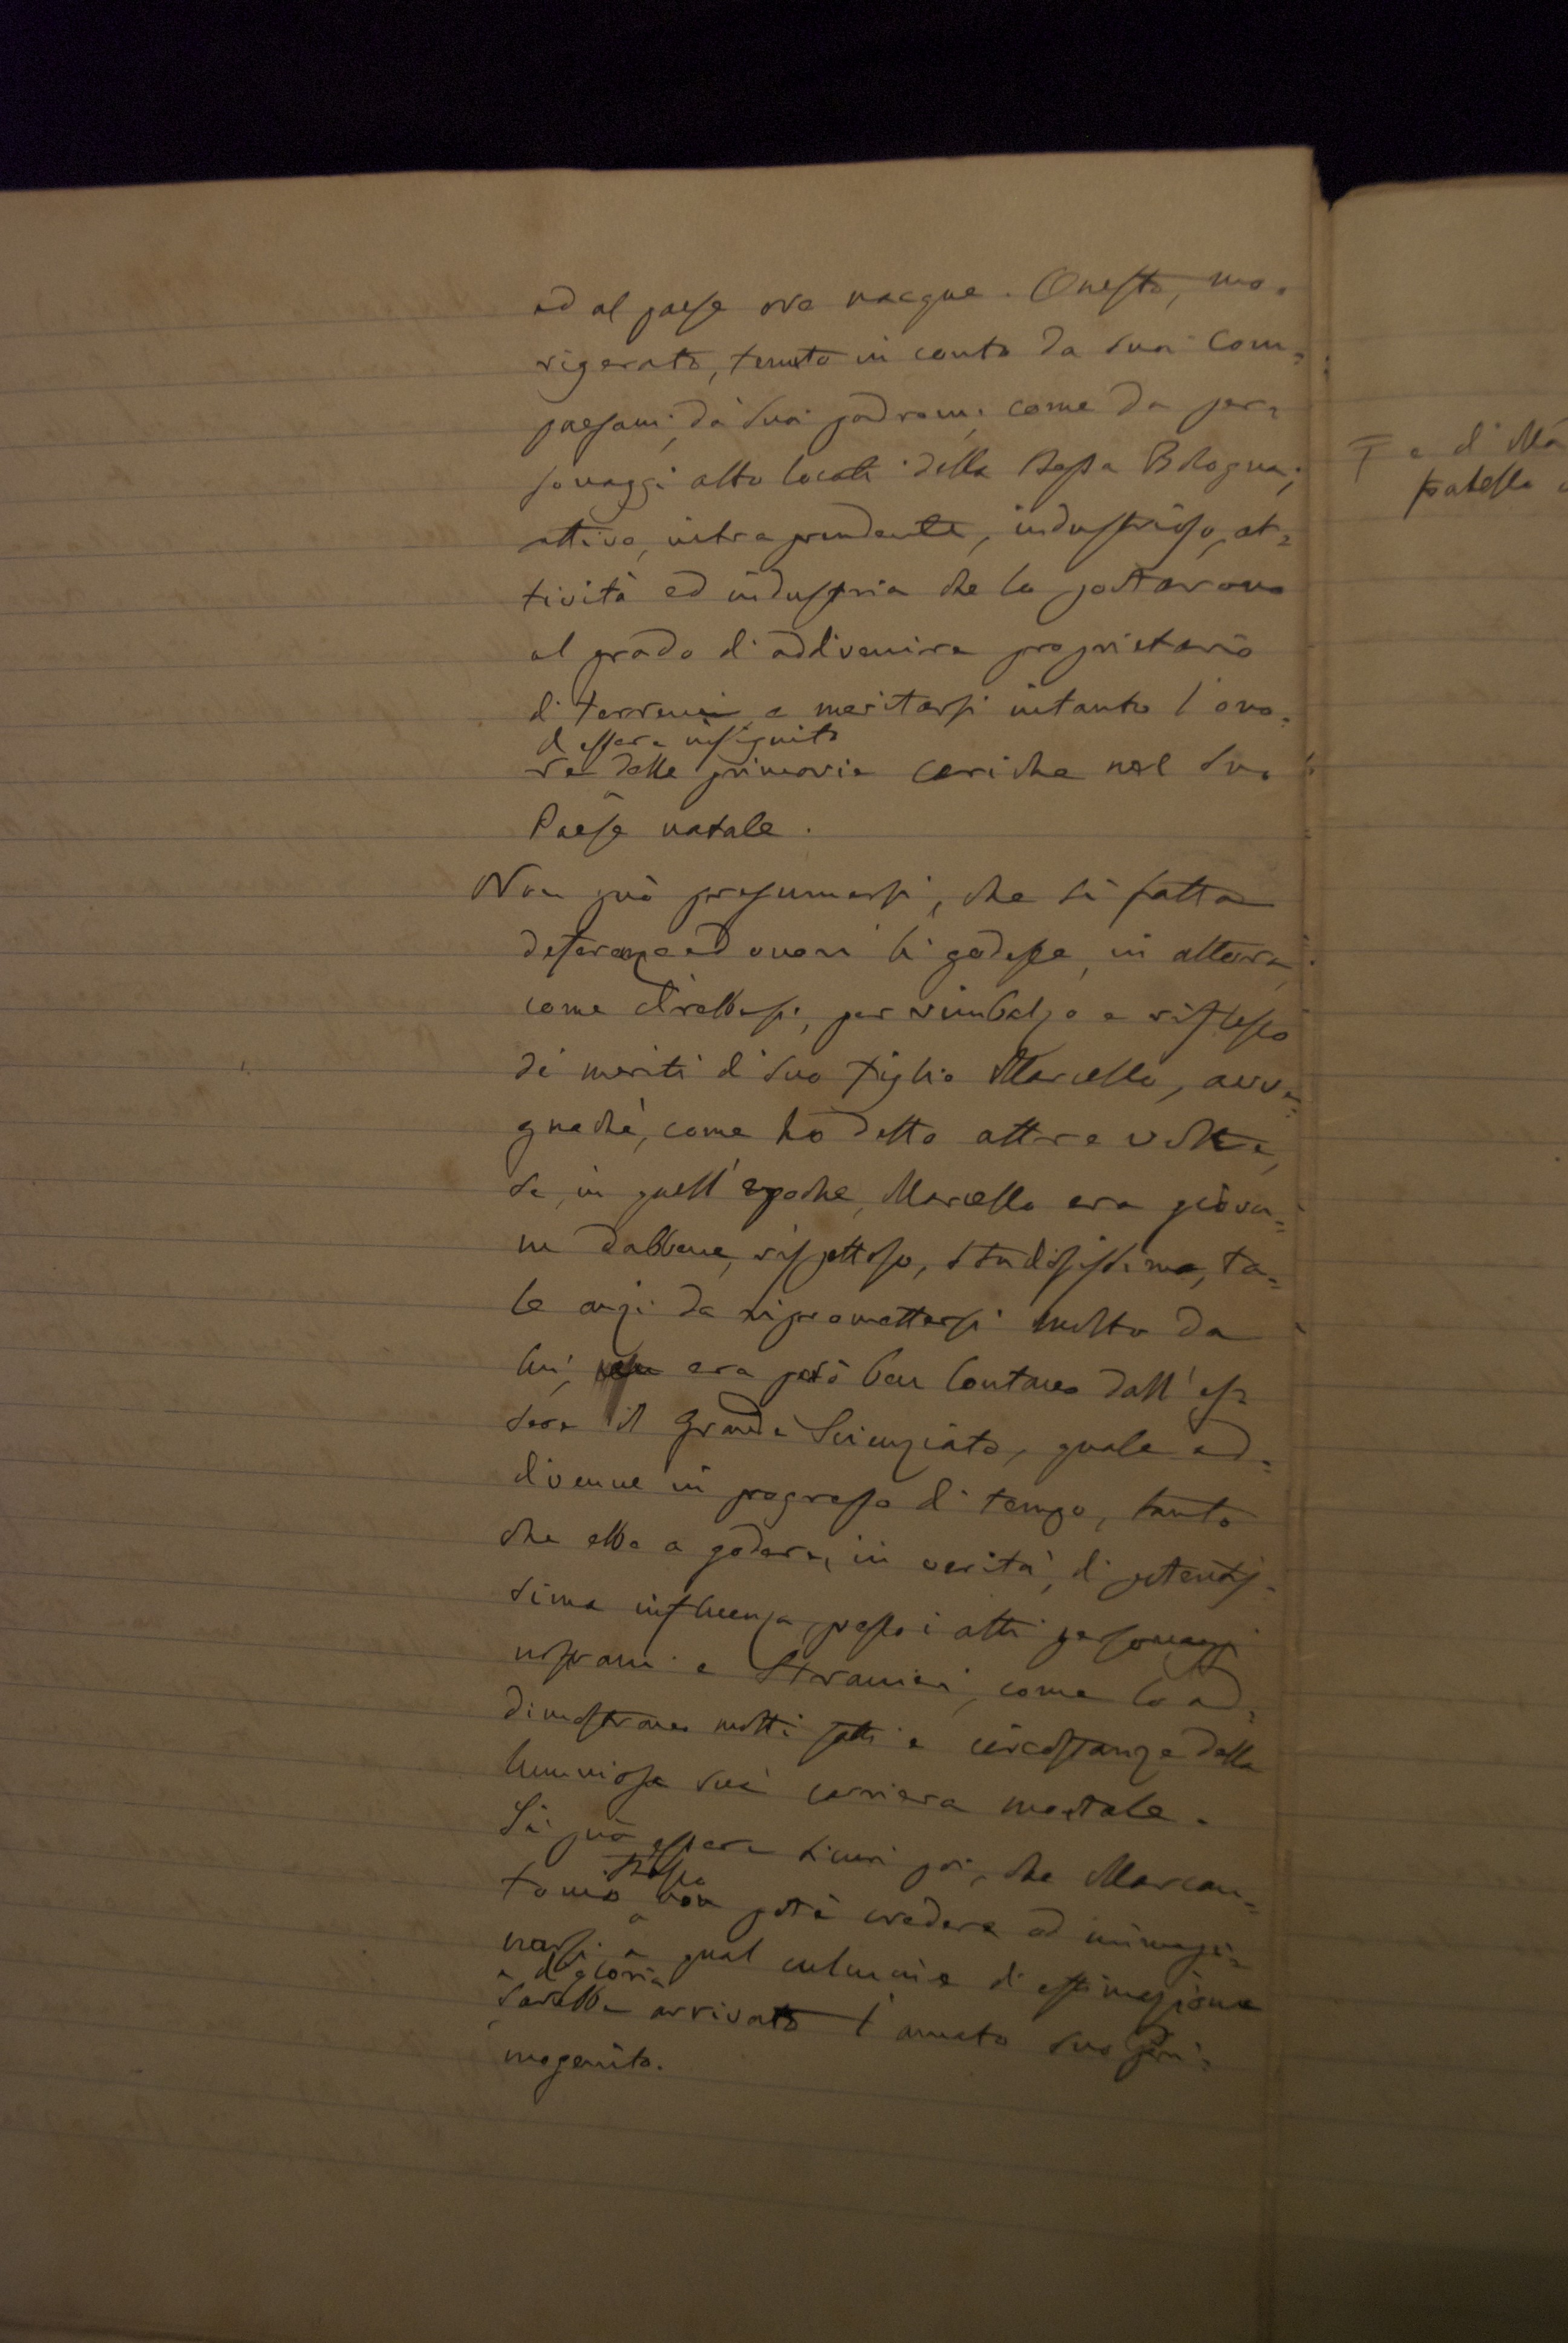 ed al paese ove nacque. Onesto, mo=
rigerato, tenuto in conto da suoi Com=
paesani, da suoi padroni, come da per=
sonaggi alto locati della stessa Bologna;
attivo, intraprendente, industrioso, at=
tività ed industria che lo portarono
al grado di addivenire proprietario
di terreni e meritarsi intanto l'ono=
d'essere insignito
re delle primarie cariche nel suo
Paese natale.
Non può presumersi, che sì fatta
deferenza ed onori li godesse, in allora,
come direbbesi, per rimbalzo e riflesso
dei meriti di suo figlio Marcello, avve=
gnachè, come ho detto altre volte,
se, in quell'epoche, Marcello era giova=
ne dabbene, rispettoso, studiosissimo, ta=
le anzi da ripromettersi molto da
lui, era però ben lontano dall'es=
sere il grande Scienziato, quale ad=
divenne in progresso di tempo, tanto
che ebbe a godere, in verità, di potentis=
sima influenza, presso i alti personaggi
nostrani e stranieri, come lo ad=
dimostrano molti fatti e circostanze della
luminosa sua carriera mortale.
Si può essere sicuri poi, che Marcan=
stesso
tonio non potè credere od immagi=
narsi a qual culmine di estimazione
e di gloria
sarebbe arrivato l'amato suo Pri=
mogenito.
e di Ma
fratello